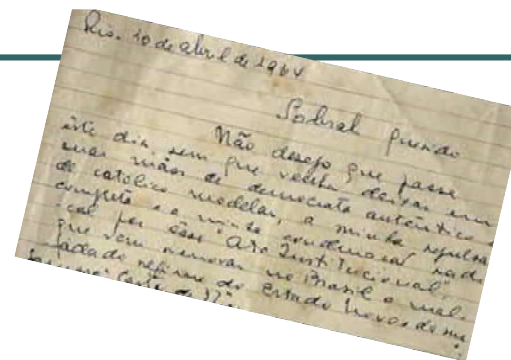 Rio. 10 de abril de 1964
Sobral querido
Não desejo que passe
êste dia, sem que venha deixar em
suas mãos de democrata autêntico e
de católico modelar, a minha repulsa
completa e a minha condenação radi-
cal por êsse "Ato Institucional",
que vem renovar no Brasil o mal-
fadado regime do Estado Novo e de sua
"Carta de 37".